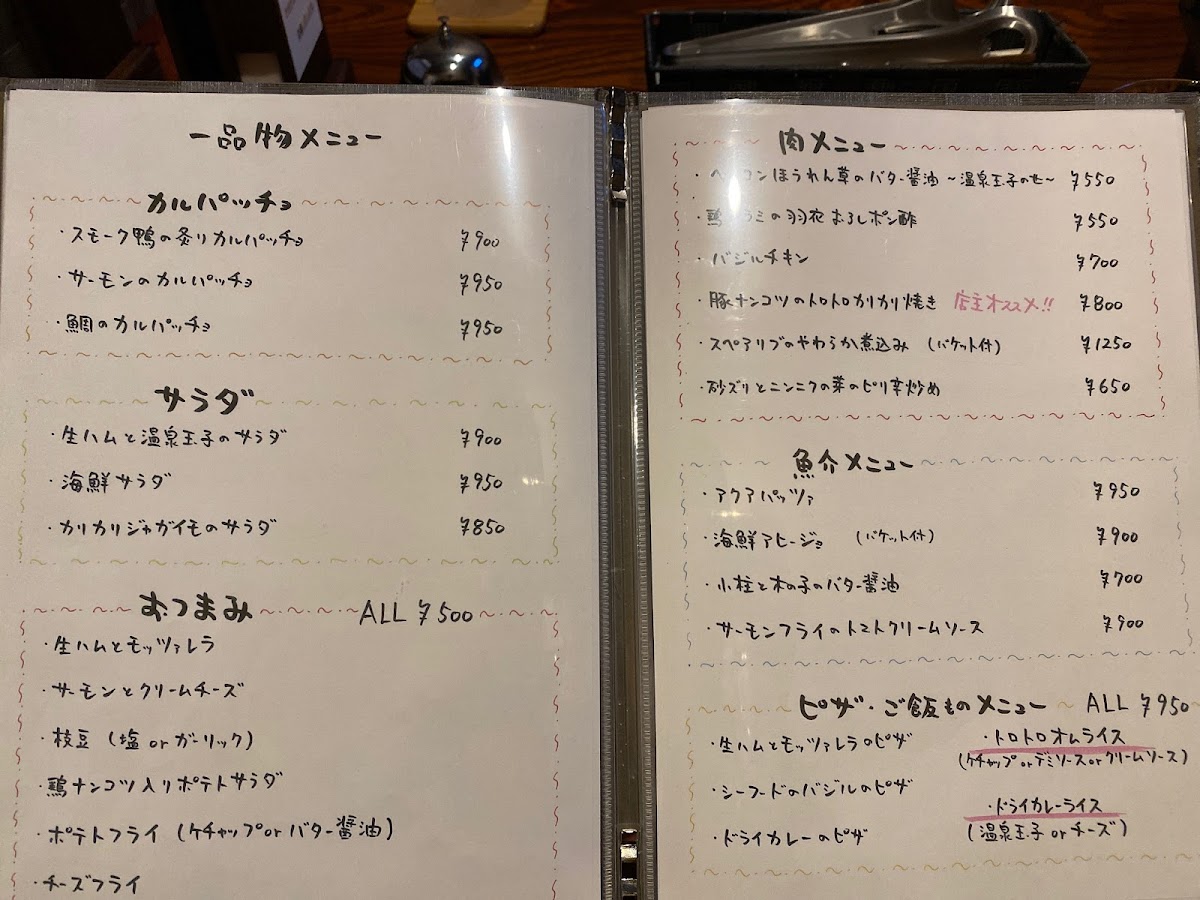 一品物メニュー
カルパッチョ
・スモーク鴨の炙りカルパッチョ ¥900
・サーモンのカルパッチョ ¥950
・鯛のカルパッチョ ¥950
サラダ
・生ハムと温泉玉子のサラダ ¥900
・海鮮サラダ ¥950
・カリカリジャガイモのサラダ ¥850
おつまみ ALL ¥500
・生ハムとモッツァレラ
・サーモンとクリームチーズ
・枝豆(塩orガーリック)
・鶏ナンコツ入りポテトサラダ
・ポテトフライ(ケチャップorバター醤油)
・チーズフライ
肉メニュー
・ベーコンほうれん草のバター醤油 〜温泉玉子のせ〜 ¥550
・鶏ササミの羽衣おろしポン酢 ¥550
・バジルチキン ¥700
・豚ナンコツのトロトロカリカリ焼き 店主オススメ!! ¥800
・スペアリブのやわらか煮込み (バケット付) ¥1250
・砂ズリとニンニクの芽のピリ辛炒め ¥650
魚介メニュー
・アクアパッツァ ¥950
・海鮮アヒージョ (バケット付) ¥900
・小柱と木の子のバター醤油 ¥700
・サーモンフライのトマトクリームソース ¥900
ピザ・ご飯ものメニュー ALL ¥950
・生ハムとモッツァレラのピザ
・シーフードのバジルのピザ
・ドライカレーのピザ
・トロトロオムライス
(ケチャップorデミソースorクリームソース)
・ドライカレーライス
(温泉玉子orチーズ)